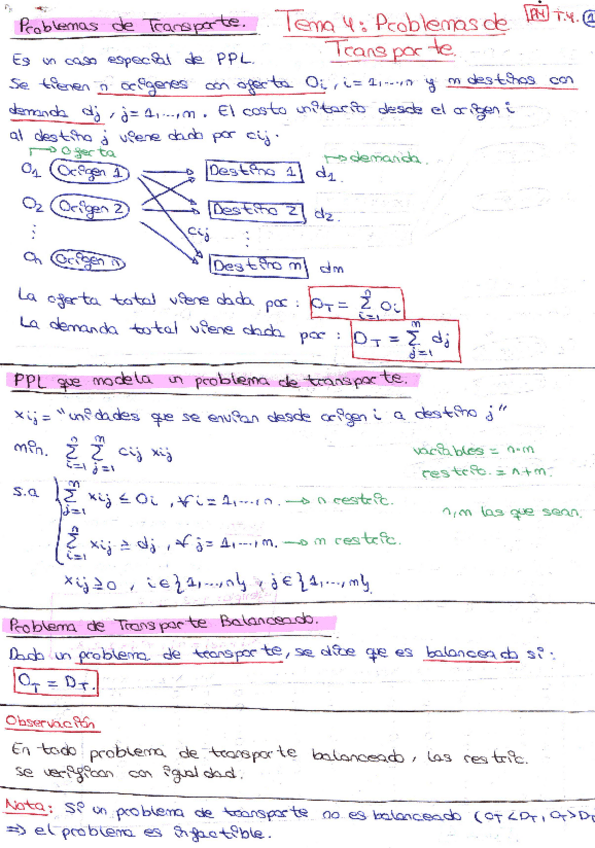 Problemas de Transporte.
Tema 4: Problemas de
Transporte
PN T.4. 1
Es un caso especial de PPL.
Se tienen n orígenes con oferta Oi, i=1,...,n y m destinos con
demanda dj, j=1,...,m. El costo unitario desde el origen i
al destino j viene dado por cij.
→ Oferta
→ demanda.
O1 Origen 1 Destino 1 d1.
O2 Origen 2 Destino 2 d2.
⋮ cij ⋮
On Origen n Destino m dm
La oferta total viene dada por: OT = Σ_{i=1}^{n} Oi
La demanda total viene dada por: DT = Σ_{j=1}^{m} dj
PPL que modela un problema de transporte.
xij = "unidades que se envían desde origen i a destino j"
min. Σ_{i=1}^{n} Σ_{j=1}^{m} cij xij
variables = n·m
restric. = n+m.
s.a Σ_{j=1}^{m} xij ≤ Oi, ∀i=1,...,n. → n restric.
n,m las que sean.
Σ_{i=1}^{n} xij ≥ dj, ∀j=1,...,m. → m restric.
xij ≥ 0, i∈{1,...,n}, j∈{1,...,m}.
Problema de Transporte Balanceado.
Dado un problema de transporte, se dice que es balanceado si:
OT = DT.
Observación
En todo problema de transporte balanceado, las restric.
se verifican con igualdad.
Nota: Si un problema de transporte no es balanceado (OT<DT, OT>DT
⇒ el problema es infactible.